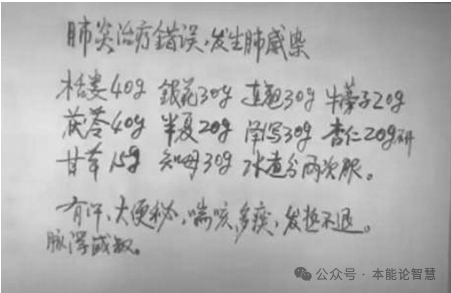 肺炎治疗錯误，发生肺感染
栝蒌40g 銀花30g 连翘30g 牛蒡子20g
茯苓40g 半夏20g 泽写30g 杏仁20g研
甘草15g 知母30g 水煮分两次服。
有汗，大便秘，喘咳，多痰，发热不退。
脉浮或数。
公众号·本能论智慧